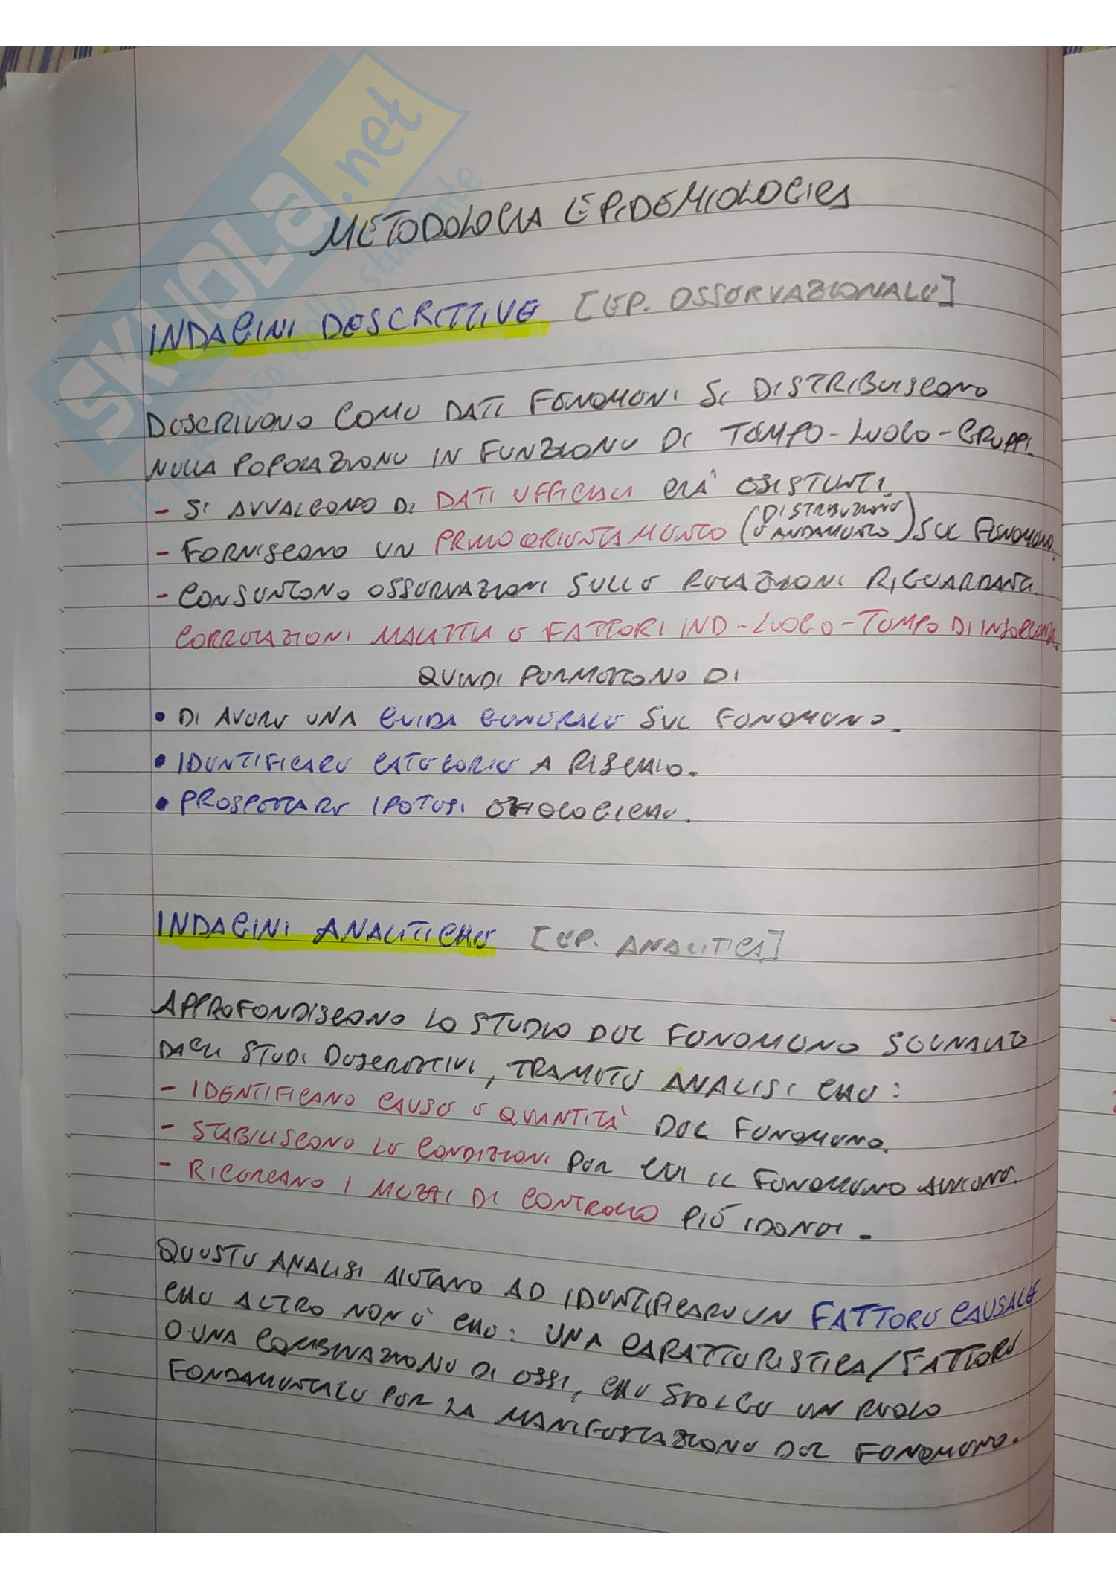 SKUOLA.net
METODOLOGIA EPIDEMIOLOGICA
INDAGINI DESCRITTIVE [EP. OSSERVAZIONALE]
DESCRIVONO COME DATI FENOMENI SI DISTRIBUISCONO
NELLA POPOLAZIONE IN FUNZIONE DI TEMPO-LUOGO-GRUPPI.
- SI AVVALGONO DI DATI UFFICIALI GIÀ ESISTENTI.
- FORNISCONO UN PRIMO ORIENTAMENTO (DISTRIBUZIONE E ANDAMENTO) SUL FENOMENO.
- CONSENTONO OSSERVAZIONI SULLE RELAZIONI RIGUARDANTI
CORRELAZIONI MALATTIA E FATTORI IND-LUOGO-TEMPO DI INSORGENZA.
QUINDI PERMETTONO DI
• DI AVERE UNA GUIDA GENERALE SUL FENOMENO.
• IDENTIFICARE CATEGORIE A RISCHIO.
• PROSPETTARE IPOTESI EZIOLOGICHE.
INDAGINI ANALITICHE [EP. ANALITICA]
APPROFONDISCONO LO STUDIO DEL FENOMENO SEGNALATO
DAGLI STUDI DESCRITTIVI, TRAMITE ANALISI CHE:
- IDENTIFICANO CAUSE E QUANTITÀ DEL FENOMENO.
- STABILISCONO LE CONDIZIONI PER CUI IL FENOMENO AVVIENE.
- RICERCANO I MEZZI DI CONTROLLO PIÙ IDONEI.
QUESTE ANALISI AIUTANO AD IDENTIFICARE UN FATTORE CAUSALE
CHE ALTRO NON È CHE: UNA CARATTERISTICA/FATTORE
O UNA COMBINAZIONE DI ESSI, CHE SVOLGE UN RUOLO
FONDAMENTALE PER LA MANIFESTAZIONE DEL FENOMENO.